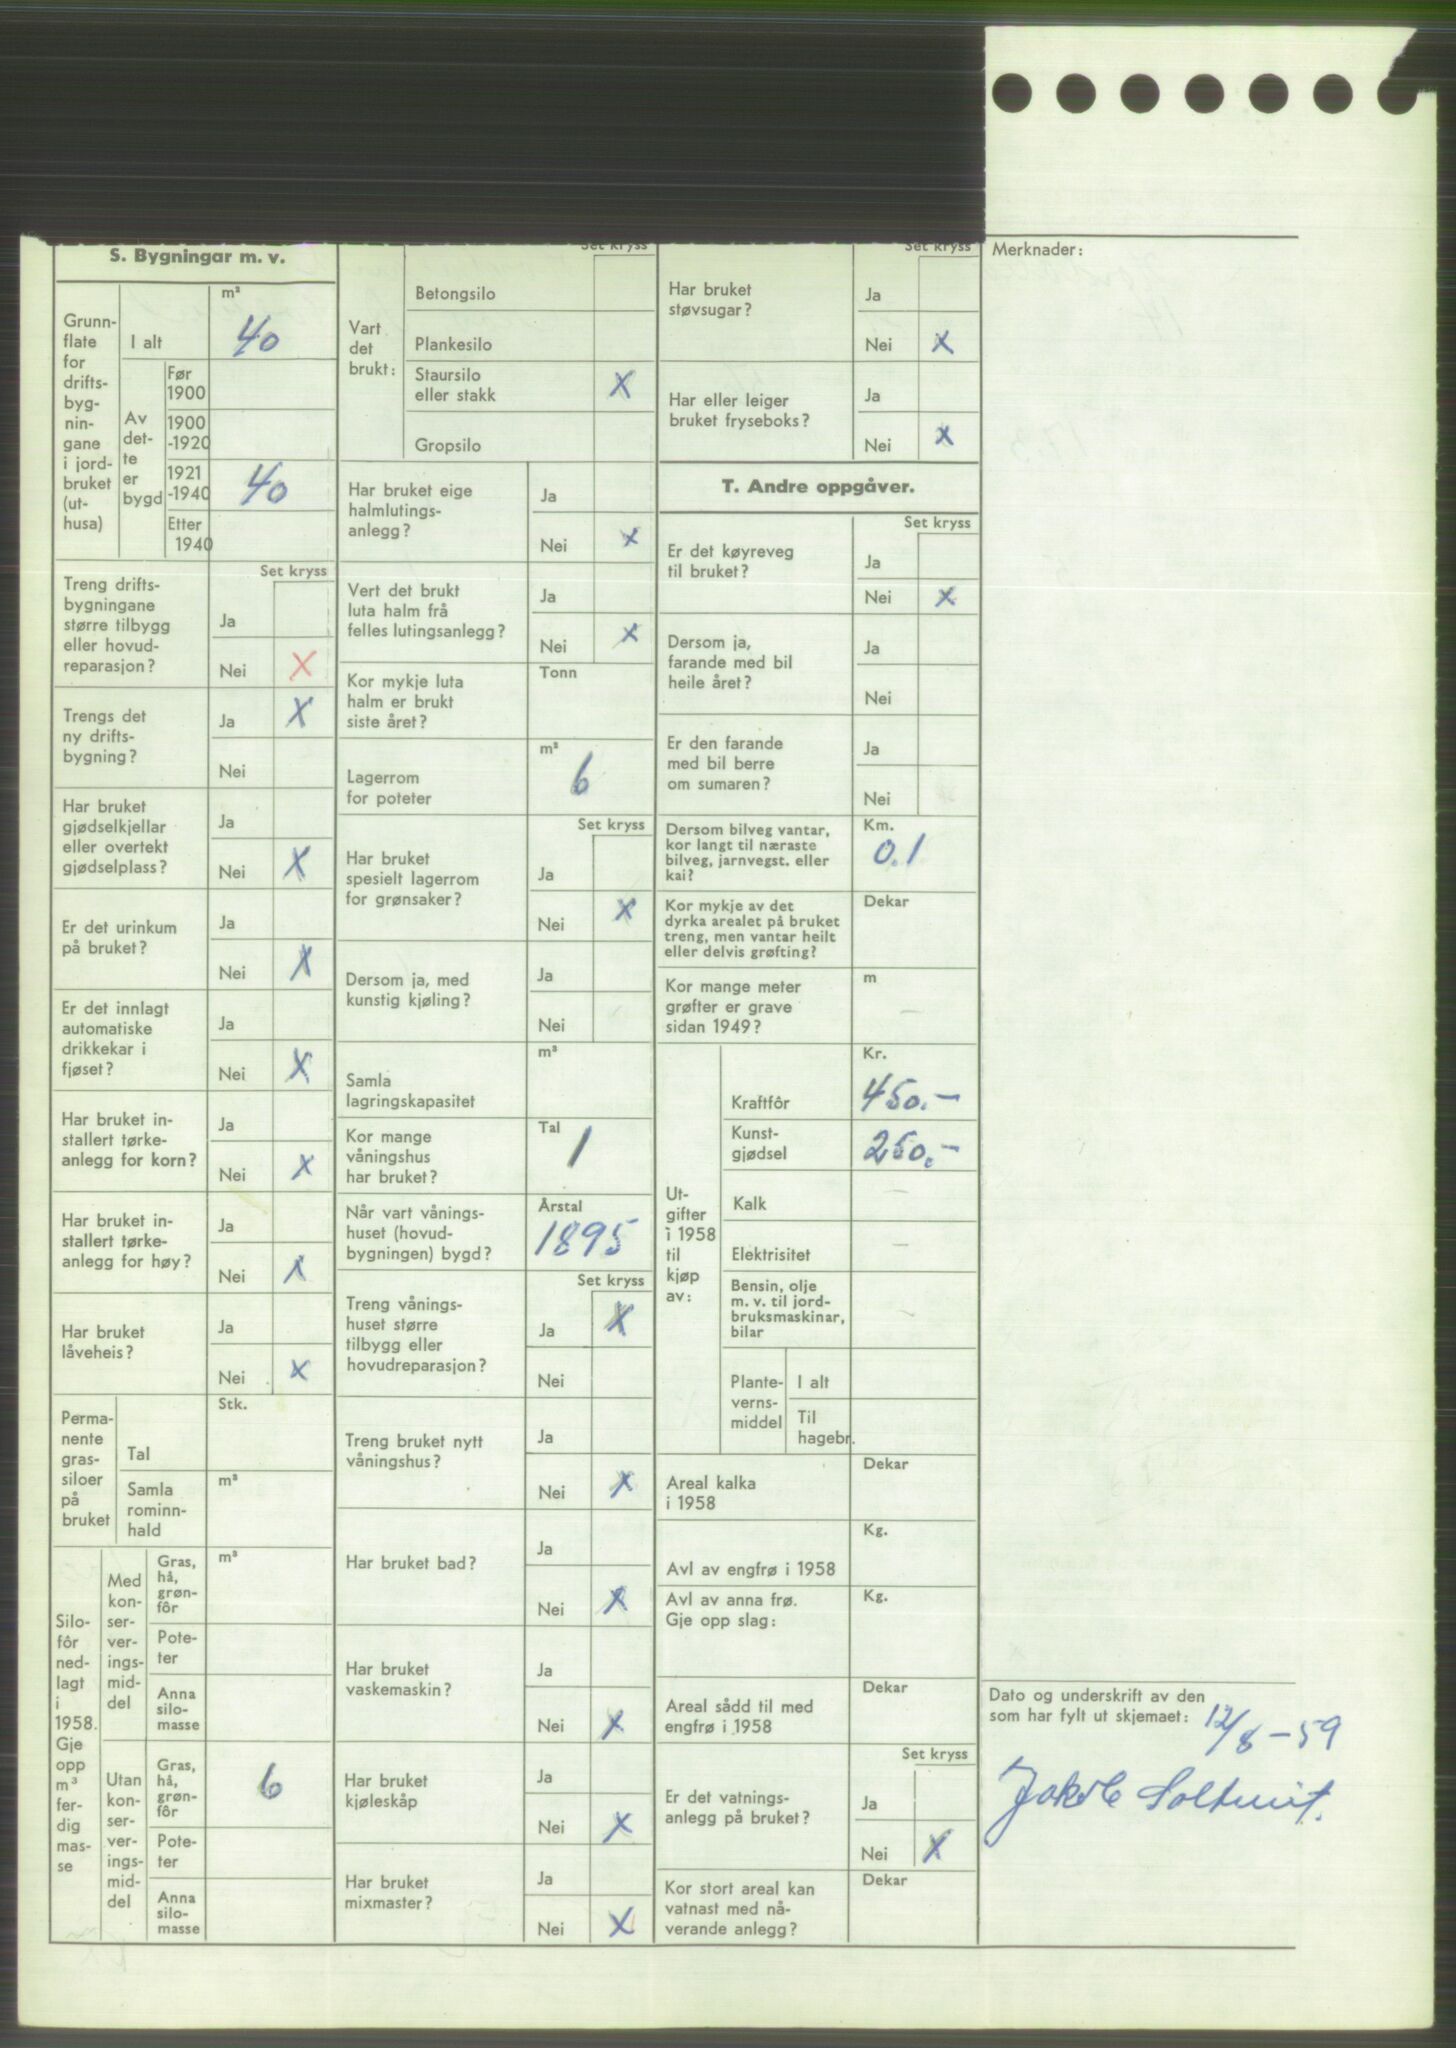 S. Bygningar m. v.
Grunn-
flate
for
drifts-
byg-
nin-
gane
i jord-
bruket
(ut-
husa)
I alt
m²
40
Av
det-
te
er
bygd
Før
1900
1900
-1920
1921
-1940
40
Etter
1940
Set kryss
Treng drifts-
bygningane
større tilbygg
eller hovud-
reparasjon?
Ja
Nei X
Trengs det
ny drifts-
bygning?
Ja X
Nei
Har bruket
gjødselkjellar
eller overtekt
gjødselplass?
Ja
Nei X
Er det urinkum
på bruket?
Ja
Nei X
Er det innlagt
automatiske
drikkekar i
fjøset?
Ja
Nei X
Har bruket in-
stallert tørke-
anlegg for korn?
Ja
Nei X
Har bruket in-
stallert tørke-
anlegg for høy?
Ja
Nei X
Har bruket
låveheis?
Ja
Nei X
Perma-
nente
gras-
siloer
på
bruket
Tal
Stk.
Samla
rominn-
hald
m³
Silo-
fôr
ned-
lagt
i
1958.
Gje
opp
m³
fer-
dig
mas-
se
Med
kon-
ser-
ver-
ings-
mid-
del
Gras,
hå,
grøn-
fôr
m³
Pote-
ter
Anna
silo-
masse
Utan
kon-
ser-
ver-
ings-
mid-
del
Gras,
hå,
grøn-
fôr
6
Pote-
ter
Anna
silo-
masse
Set kryss
Vart
det
brukt:
Betongsilo
Plankesilo
Staursilo
eller stakk X
Gropsilo
Har bruket eige
halmlutings-
anlegg?
Ja
Nei X
Vert det brukt
luta halm frå
felles lutingsanlegg?
Ja
Nei X
Kor mykje luta
halm er brukt
siste året?
Tonn
Lagerrom
for poteter
m³
6
Set kryss
Har bruket
spesielt lagerrom
for grønsaker?
Ja
Nei X
Dersom ja, med
kunstig kjøling?
Ja
Nei
Samla
lagringskapasitet
m³
Kor mange
våningshus
har bruket?
Tal
1
Når vart vånings-
huset (hovud-
bygningen) bygd?
Årstal
1895
Set kryss
Treng vånings-
huset større
tilbygg eller
hovudreparasjon?
Ja X
Nei
Treng bruket nytt
våningshus?
Ja
Nei X
Har bruket bad?
Ja
Nei X
Har bruket
vaskemaskin?
Ja
Nei X
Har bruket
kjøleskåp
Ja
Nei X
Har bruket
mixmaster?
Ja
Nei X
Set kryss
Har bruket
støvsugar?
Ja
Nei X
Har eller leiger
bruket fryseboks?
Ja
Nei X
T. Andre oppgåver.
Set kryss
Er det køyreveg
til bruket?
Ja
Nei X
Dersom ja,
farande med bil
heile året?
Ja
Nei
Er den farande
med bil berre
om sumaren?
Ja
Nei
Dersom bilveg vantar,
kor langt til næraste
bilveg, jarnvegst. eller
kai?
Km.
0.1
Kor mykje av det
dyrka arealet på bruket
treng, men vantar heilt
eller delvis grøfting?
Dekar
Kor mange meter
grøfter er grave
sidan 1949?
m
–
Ut-
gifter
i 1958
til
kjøp
av:
Kr.
Kraftfôr
450.–
Kunst-
gjødsel
250.–
Kalk
–
Elektrisitet
–
Bensin, olje
m. v. til jord-
bruksmaskinar,
bilar
–
Plante-
verns-
middel
I alt
Til
hagebr.
Areal kalka
i 1958
Dekar
Avl av engfrø i 1958
Kg.
Avl av anna frø.
Gje opp slag:
Kg.
Areal sådd til med
engfrø i 1958
Dekar
Set kryss
Er det vatnings-
anlegg på bruket?
Ja
Nei X
Kor stort areal kan
vatnast med nå-
verande anlegg?
Dekar
Merknader:
Dato og underskrift av den
som har fylt ut skjemaet: 12/8 – 59
Jakob